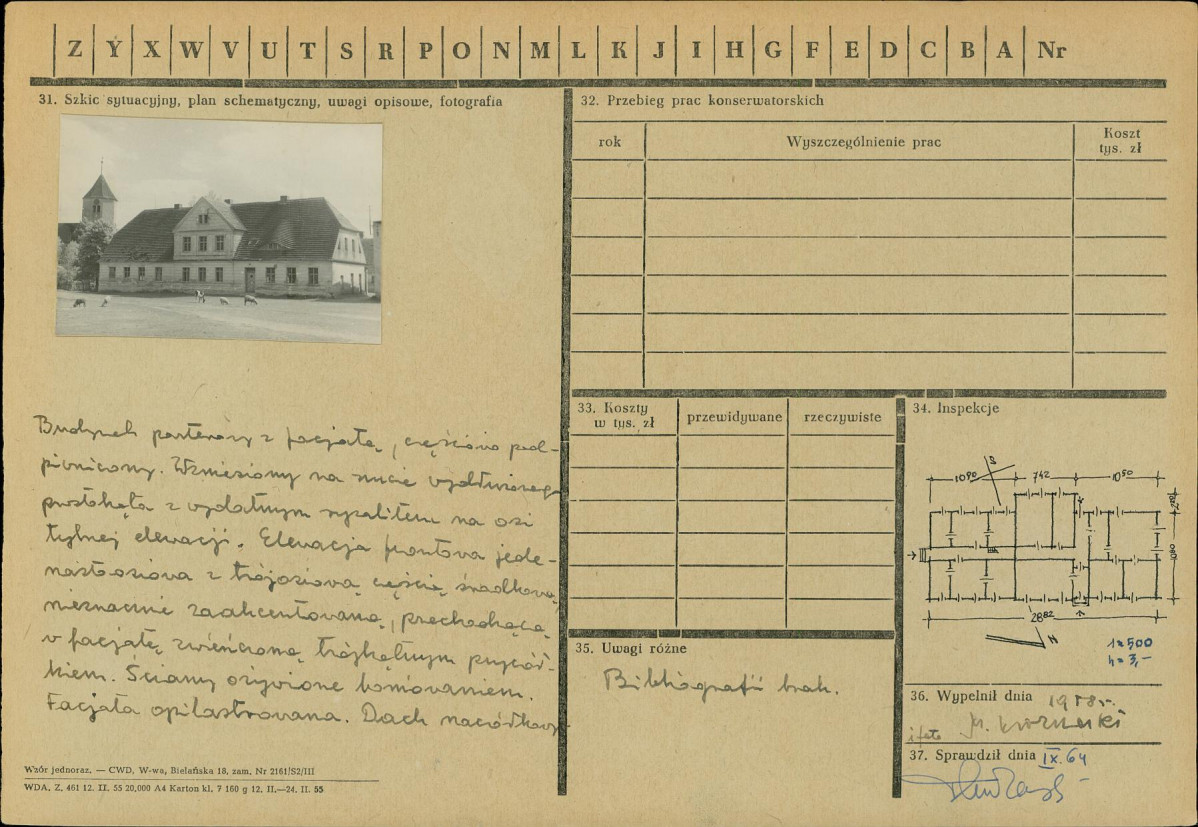 Z Y X W V U T S R P O N M L K J I H G F E D C B A Nr
31. Szkic sytuacyjny, plan schematyczny, uwagi opisowe, fotografia
Budynek parterowy z facjatą, częściowo pod-
piwniczony. Wzniesiony na rzucie wydłużonego
prostokąta z wydatnym ryzalitem na osi
tylnej elewacji. Elewacja frontowa jede-
nastoosiowa z trójosiową częścią środkową,
nieznacznie zaakcentowaną, przechodzącą
w facjatę zwieńczoną trójkątnym przyczół-
kiem. Ściany ożywione boniowaniem.
Facjata opilastrowana. Dach naczółkowy
Wzór jednoraz. — CWD, W-wa, Bielańska 18, zam. Nr 2161/S2/III
WDA. Z. 461 12. II. 55 20,000 A4 Karton kl. 7 160 g 12. II.—24. II. 55
32. Przebieg prac konserwatorskich
rok Wyszczególnienie prac Koszt
tys. zł
33. Koszty
w tys. zł przewidywane rzeczywiste
34. Inspekcje
S
10 90 742 10 50
28 82
N
1:500
h = 3,-
35. Uwagi różne
Bibliografii brak.
36. Wypełnił dnia 1958 r.
i foto
37. Sprawdził dnia IX. 64